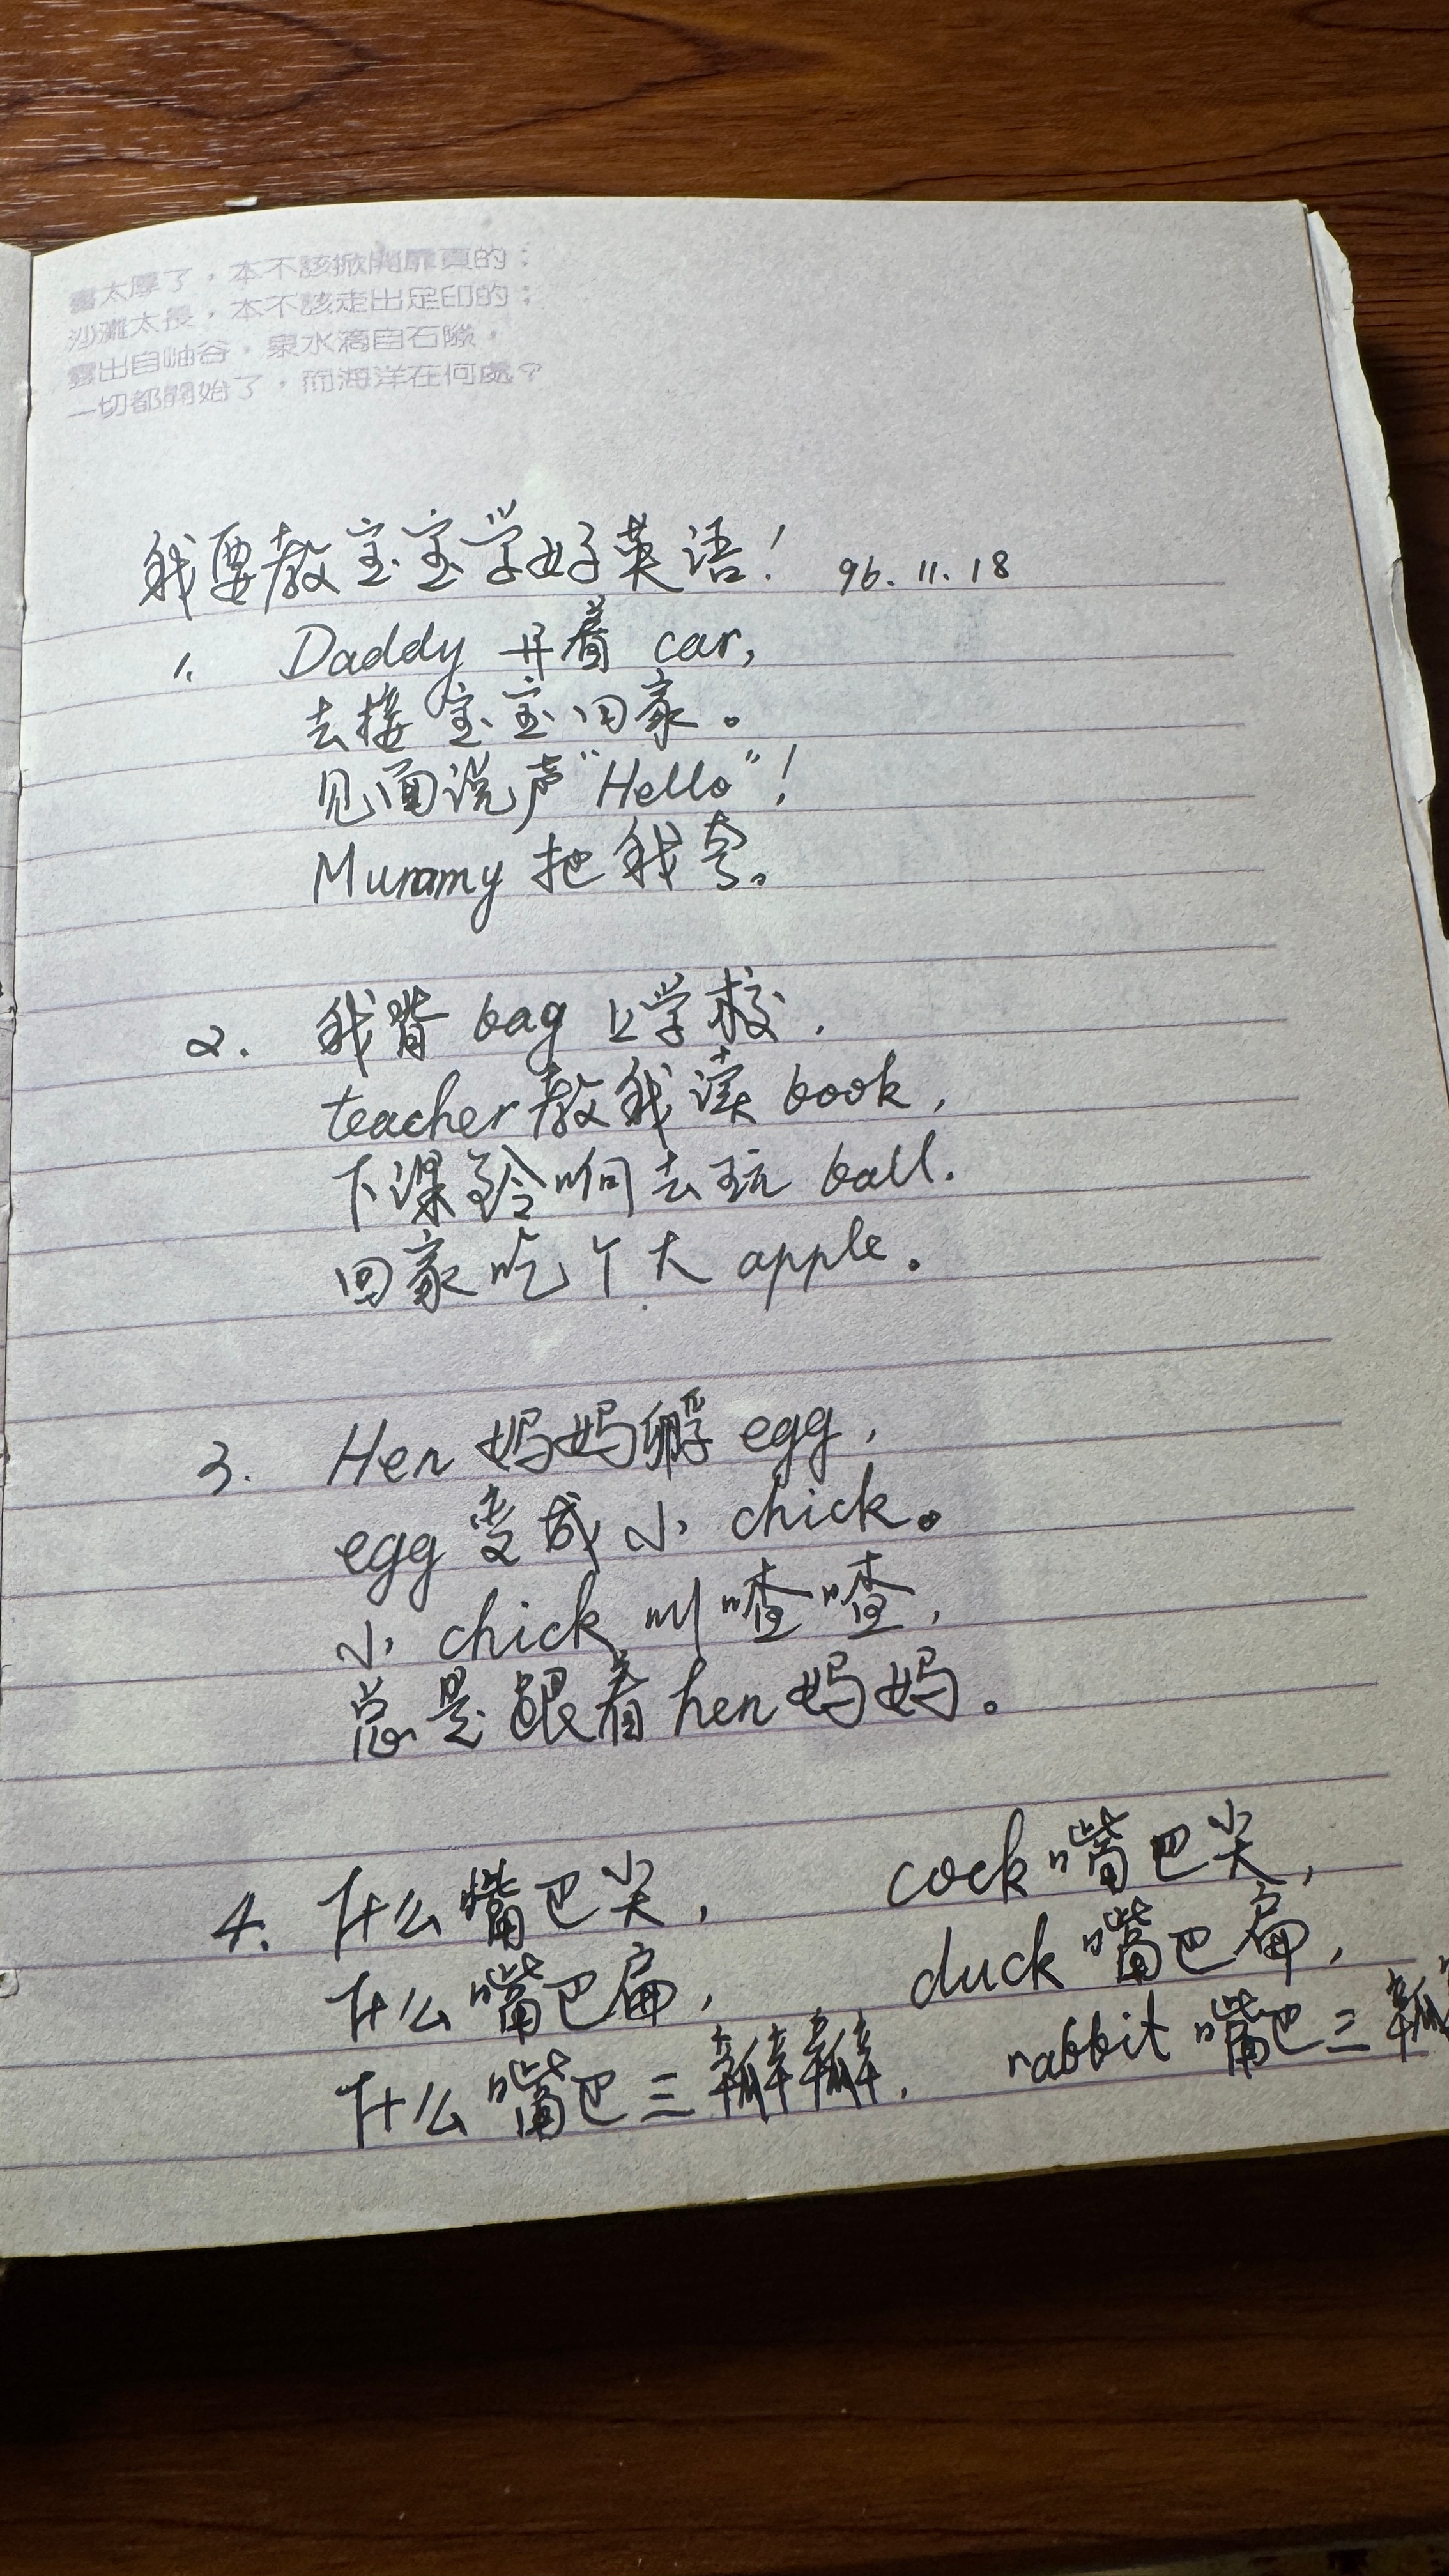 書太厚了，本不該掀開扉頁的；
沙灘太長，本不該走出足印的；
雲出自岫谷，泉水滴自石隙，
一切都開始了，而海洋在何處？
我要教宝宝学好英语！ 96.11.18
1. Daddy 开着 car,
去接宝宝回家。
见面说声“Hello”！
Mummy 把我夸。
2. 我背 bag 上学校，
teacher 教我读 book，
下课铃响去玩 ball.
回家吃个大 apple。
3. Hen 妈妈孵 egg，
egg 变成小 chick。
小 chick 叫喳喳，
总是跟着 hen 妈妈。
4. 什么嘴巴尖， cock 嘴巴尖，
什么嘴巴扁， duck 嘴巴扁，
什么嘴巴三瓣瓣， rabbit 嘴巴三瓣